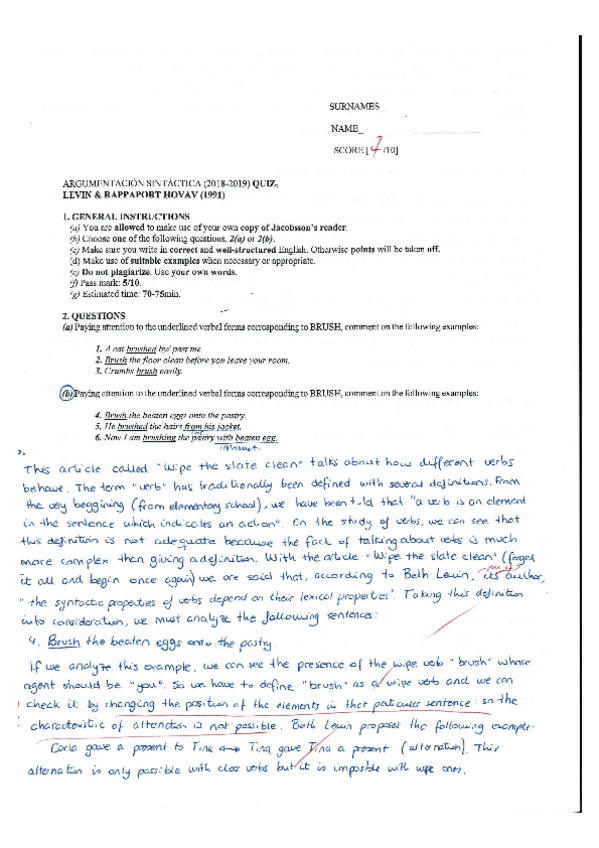 SURNAMES
NAME_
SCORE [7/10]
ARGUMENTACIÓN SINTÁCTICA (2018-2019) QUIZ.
LEVIN & RAPPAPORT HOVAV (1991)
1. GENERAL INSTRUCTIONS
(a) You are allowed to make use of your own copy of Jacobsson's reader.
(b) Choose one of the following questions, 2(a) or 2(b).
(c) Make sure you write in correct and well-structured English. Otherwise points will be taken off.
(d) Make use of suitable examples when necessary or appropriate.
(e) Do not plagiarize. Use your own words.
(f) Pass mark: 5/10.
(g) Estimated time: 70-75min.
2. QUESTIONS
(a) Paying attention to the underlined verbal forms corresponding to BRUSH, comment on the following examples:
1. A cat brushed by/ past me.
2. Brush the floor clean before you leave your room.
3. Crumbs brush easily.
(b) Paying attention to the underlined verbal forms corresponding to BRUSH, comment on the following examples:
4. Brush the beaten eggs onto the pastry.
5. He brushed the hairs from his jacket.
6. Now I am brushing the pastry with beaten egg.
This article called "Wipe the slate clean" talks about how different verbs
behave. The term "verb" has traditionally been defined with several definitions. From
the very beggining (from elementary school), we have been told that "a verb is an element
in the sentence which indicates an action". On the study of verbs, we can see that
this definition is not adequate because the fact of talking about verbs is much
more complex than giving a definition. With the article "Wipe the slate clean" (forget
it all and begin once again) we are said that, according to Beth Levin, its author,
"the syntactic properties of verbs depend on their lexical properties". Taking this definition
into consideration, we must analyze the following sentences:
4. Brush the beaten eggs onto the pastry.
If we analyze this example, we can see the presence of the wipe verb "brush" whose
agent should be "you". So we have to define "brush" as a wipe verb and we can
check it by changing the position of the elements in that paticular sentence: so the
characteristic of alternation is not possible. Beth Levin proposes the following example:
Carla gave a present to Tina ↔ Tina gave Tina a present (alternation). This
alternation is only possible with clear verbs but it is imposible with wipe ones.